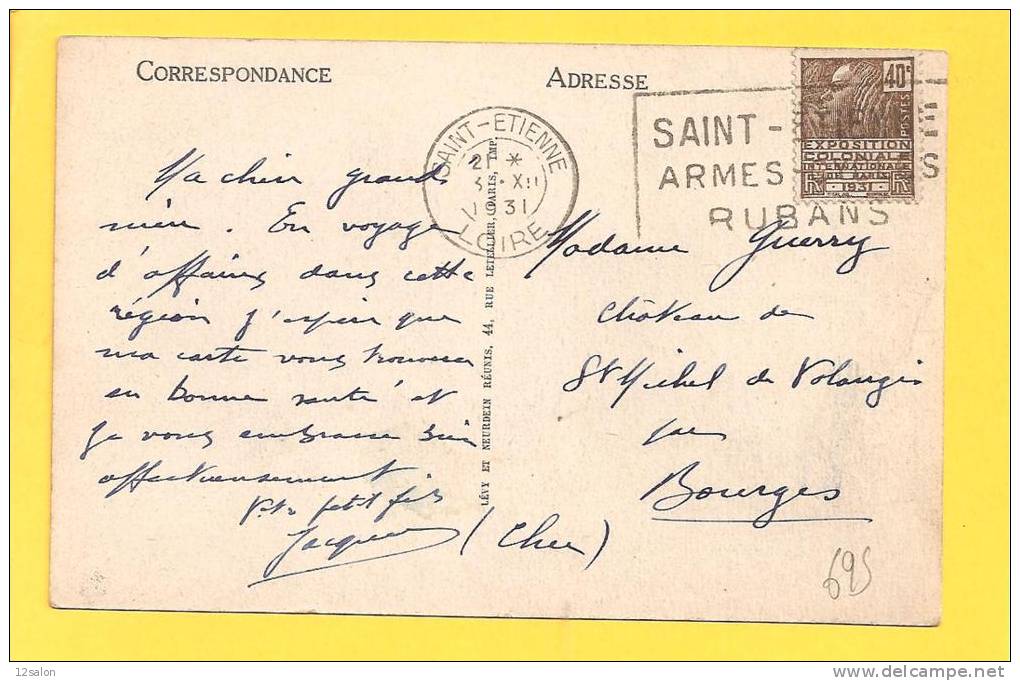 CORRESPONDANCE
ADRESSE
SAINT-ETIENNE
21 *
3 - XII
1931
LOIRE
SAINT -
ARMES
RUBANS
40c
POSTES
EXPOSITION
COLONIALE
INTERNATIONALE
DE PARIS
1931
RF
Ma chère grand
mère. En voyage
d'affaires dans cette
région j'espère que
ma carte vous trouvera
en bonne santé et
je vous embrasse bien
affectueusement
Votre petit fils
Jacques
LÉVY ET NEURDEIN RÉUNIS, 44, RUE LETELLIER, PARIS, IMP.
Madame Guerry
Château de
St Michel de Volangis
par
Bourges
(Cher)
695
12salon
www.delcampe.net